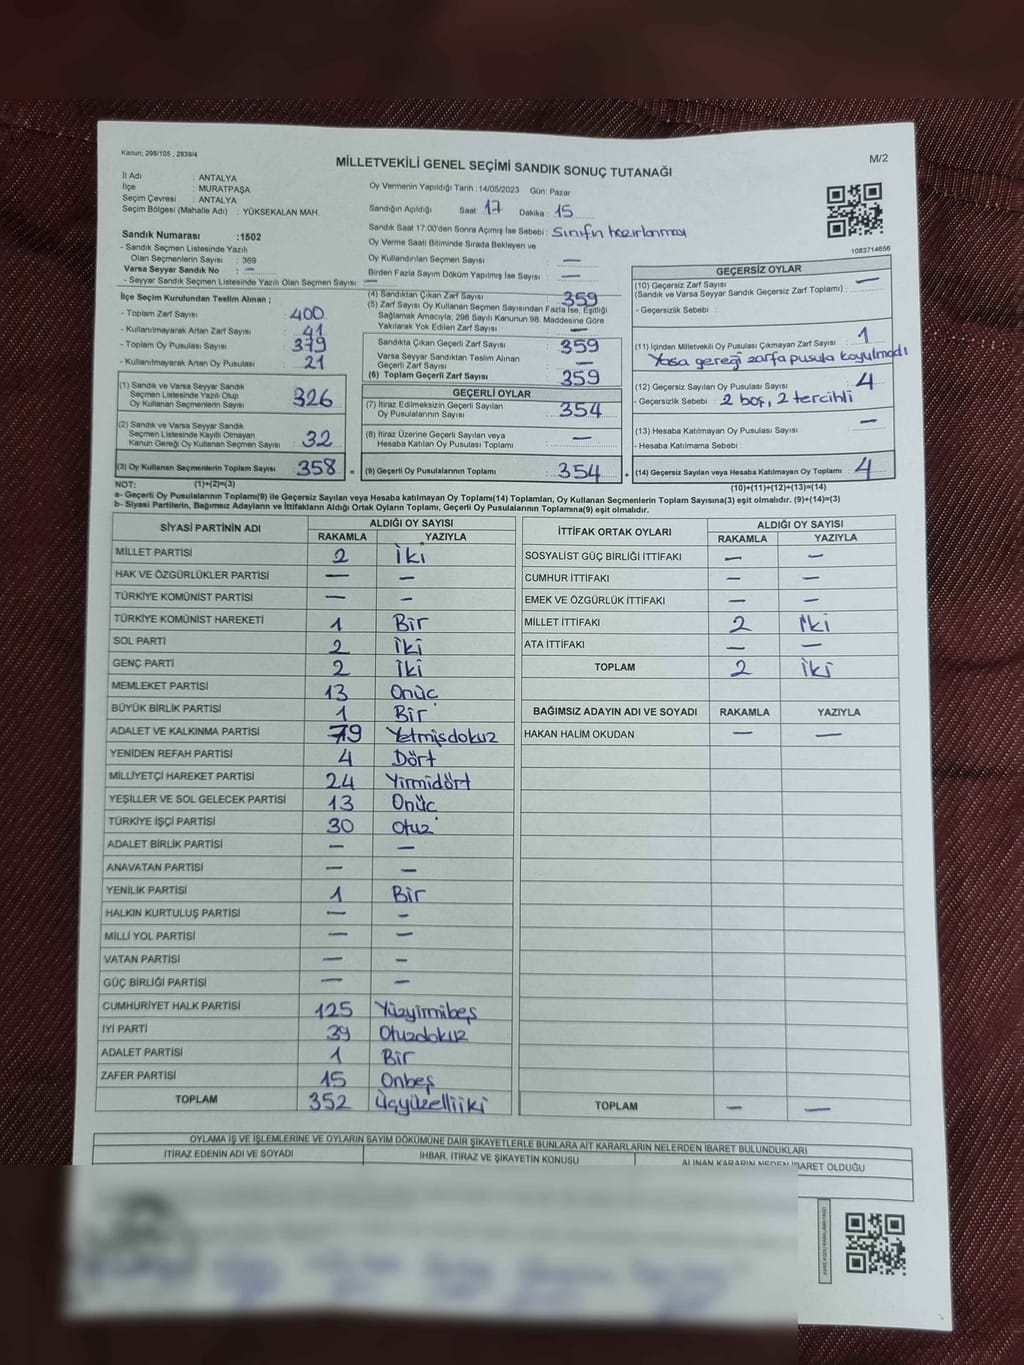 Kanun; 298/105 , 2839/4
MİLLETVEKİLİ GENEL SEÇİMİ SANDIK SONUÇ TUTANAĞI
M/2
İl Adı : ANTALYA
İlçe : MURATPAŞA
Seçim Çevresi : ANTALYA
Seçim Bölgesi (Mahalle Adı) : YÜKSEKALAN MAH.
Oy Vermenin Yapıldığı Tarih : 14/05/2023 Gün: Pazar
Sandığın Açıldığı Saat : 17 Dakika : 15
Sandık Saat 17:00'den Sonra Açımış İse Sebebi : Sınıfın hazırlanması
Oy Verme Saati Bitiminde Sırada Bekleyen ve
Oy Kullandırılan Seçmen Sayısı : —
Birden Fazla Sayım Döküm Yapılmış İse Sayısı : —
1083714656
Sandık Numarası :1502
- Sandık Seçmen Listesinde Yazılı
Olan Seçmenlerin Sayısı : 369
Varsa Seyyar Sandık No : —
- Seyyar Sandık Seçmen Listesinde Yazılı Olan Seçmen Sayısı: —
İlçe Seçim Kurulundan Teslim Alınan ;
- Toplam Zarf Sayısı : 400
- Kullanılmayarak Artan Zarf Sayısı : 41
- Toplam Oy Pusulası Sayısı : 379
- Kullanılmayarak Artan Oy Pusulası : 21
(1) Sandık ve Varsa Seyyar Sandık
Seçmen Listesinde Yazılı Olup
Oy Kullanan Seçmenlerin Sayısı : 326
(2) Sandık ve Varsa Seyyar Sandık
Seçmen Listesinde Kayıtlı Olmayan
Kanun Gereği Oy Kullanan Seçmen Sayısı : 32
(3) Oy Kullanan Seçmenlerin Toplam Sayısı : 358 =
(4) Sandıktan Çıkan Zarf Sayısı : 359
(5) Zarf Sayısı Oy Kullanan Seçmen Sayısından Fazla İse, Eşitliği
Sağlamak Amacıyla, 298 Sayılı Kanunun 98. Maddesine Göre
Yakılarak Yok Edilen Zarf Sayısı : —
Sandıkta Çıkan Geçerli Zarf Sayısı : 359
Varsa Seyyar Sandıktan Teslim Alınan
Geçerli Zarf Sayısı : —
(6) Toplam Geçerli Zarf Sayısı : 359
GEÇERLİ OYLAR
(7) İtiraz Edilmeksizin Geçerli Sayılan
Oy Pusulalarının Sayısı : 354
(8) İtiraz Üzerine Geçerli Sayılan veya
Hesaba Katılan Oy Pusulası Toplamı : —
(9) Geçerli Oy Pusulalarının Toplamı : 354 +
GEÇERSİZ OYLAR
(10) Geçersiz Zarf Sayısı
(Sandık ve Varsa Seyyar Sandık Geçersiz Zarf Toplamı) : —
- Geçersizlik Sebebi :
(11) İçinden Milletvekili Oy Pusulası Çıkmayan Zarf Sayısı : 1
Yasa gereği zarfa pusula koyulmadı
(12) Geçersiz Sayılan Oy Pusulası Sayısı : 4
- Geçersizlik Sebebi : 2 boş, 2 tercihli
(13) Hesaba Katılmayan Oy Pusulası Sayısı : —
- Hesaba Katılmama Sebebi :
(14) Geçersiz Sayılan veya Hesaba Katılmayan Oy Toplamı : 4
NOT: (1)+(2)=(3) (10)+(11)+(12)+(13)=(14)
a- Geçerli Oy Pusulalarının Toplamı(9) ile Geçersiz Sayılan veya Hesaba katılmayan Oy Toplamı(14) Toplamları, Oy Kullanan Seçmenlerin Toplam Sayısına(3) eşit olmalıdır. (9)+(14)=(3)
b- Siyasi Partilerin, Bağımsız Adayların ve İttifakların Aldığı Ortak Oyların Toplamı, Geçerli Oy Pusulalarının Toplamına(9) eşit olmalıdır.
SİYASİ PARTİNİN ADI ALDIĞI OY SAYISI
RAKAMLA YAZIYLA
MİLLET PARTİSİ 2 İki
HAK VE ÖZGÜRLÜKLER PARTİSİ — —
TÜRKİYE KOMÜNİST PARTİSİ — —
TÜRKİYE KOMÜNİST HAREKETİ 1 Bir
SOL PARTİ 2 İki
GENÇ PARTİ 2 İki
MEMLEKET PARTİSİ 13 Onüç
BÜYÜK BİRLİK PARTİSİ 1 Bir
ADALET VE KALKINMA PARTİSİ 79 Yetmişdokuz
YENİDEN REFAH PARTİSİ 4 Dört
MİLLİYETÇİ HAREKET PARTİSİ 24 Yirmidört
YEŞİLLER VE SOL GELECEK PARTİSİ 13 Onüç
TÜRKİYE İŞÇİ PARTİSİ 30 Otuz
ADALET BİRLİK PARTİSİ — —
ANAVATAN PARTİSİ — —
YENİLİK PARTİSİ 1 Bir
HALKIN KURTULUŞ PARTİSİ — —
MİLLİ YOL PARTİSİ — —
VATAN PARTİSİ — —
GÜÇ BİRLİĞİ PARTİSİ — —
CUMHURİYET HALK PARTİSİ 125 Yüzyirmibeş
İYİ PARTİ 39 Otuzdokuz
ADALET PARTİSİ 1 Bir
ZAFER PARTİSİ 15 Onbeş
TOPLAM 352 Üçyüzelliiki
İTTİFAK ORTAK OYLARI ALDIĞI OY SAYISI
RAKAMLA YAZIYLA
SOSYALİST GÜÇ BİRLİĞİ İTTİFAKI — —
CUMHUR İTTİFAKI — —
EMEK VE ÖZGÜRLÜK İTTİFAKI — —
MİLLET İTTİFAKI 2 İki
ATA İTTİFAKI — —
TOPLAM 2 İki
BAĞIMSIZ ADAYIN ADI VE SOYADI RAKAMLA YAZIYLA
HAKAN HALİM OKUDAN — —
TOPLAM — —
OYLAMA İŞ VE İŞLEMLERİNE VE OYLARIN SAYIM DÖKÜMÜNE DAİR ŞİKAYETLERLE BUNLARA AİT KARARLARIN NELERDEN İBARET BULUNDUKLARI
İTİRAZ EDENİN ADI VE SOYADI İHBAR, İTİRAZ VE ŞİKAYETİN KONUSU ALINAN KARARIN NEDEN İBARET OLDUĞU